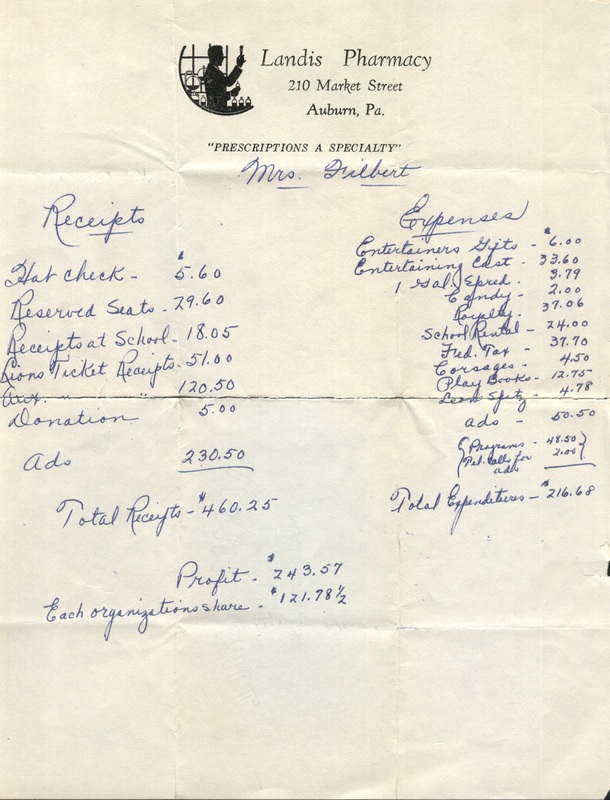 Landis Pharmacy
210 Market Street
Auburn, Pa.
"PRESCRIPTIONS A SPECIALTY"
Mrs. Filbert
Receipts
Hat check - $5.60
Reserved Seats - 29.60
Receipts at School - 18.05
Lions Ticket Receipts - 51.00
Aux. " " 120.50
Donation 5.00
Ads 230.50
Total Receipts - $460.25
Expenses
Entertainers Gifts - $6.00
Entertaining Cast - 33.60
1 Gal. Spred. 3.79
Candy - 2.00
Royalty - 37.06
School Rental - 24.00
Fed. Tax - 37.70
Corsages - 4.50
Play Books - 12.75
Leon Spitz - 4.78
Ads - 50.50
{Programs - 48.50}
{Tel. Calls for 2.00}
ads
Total Expenditures - $216.68
Profit - $243.57
Each organizations share - $121.78½